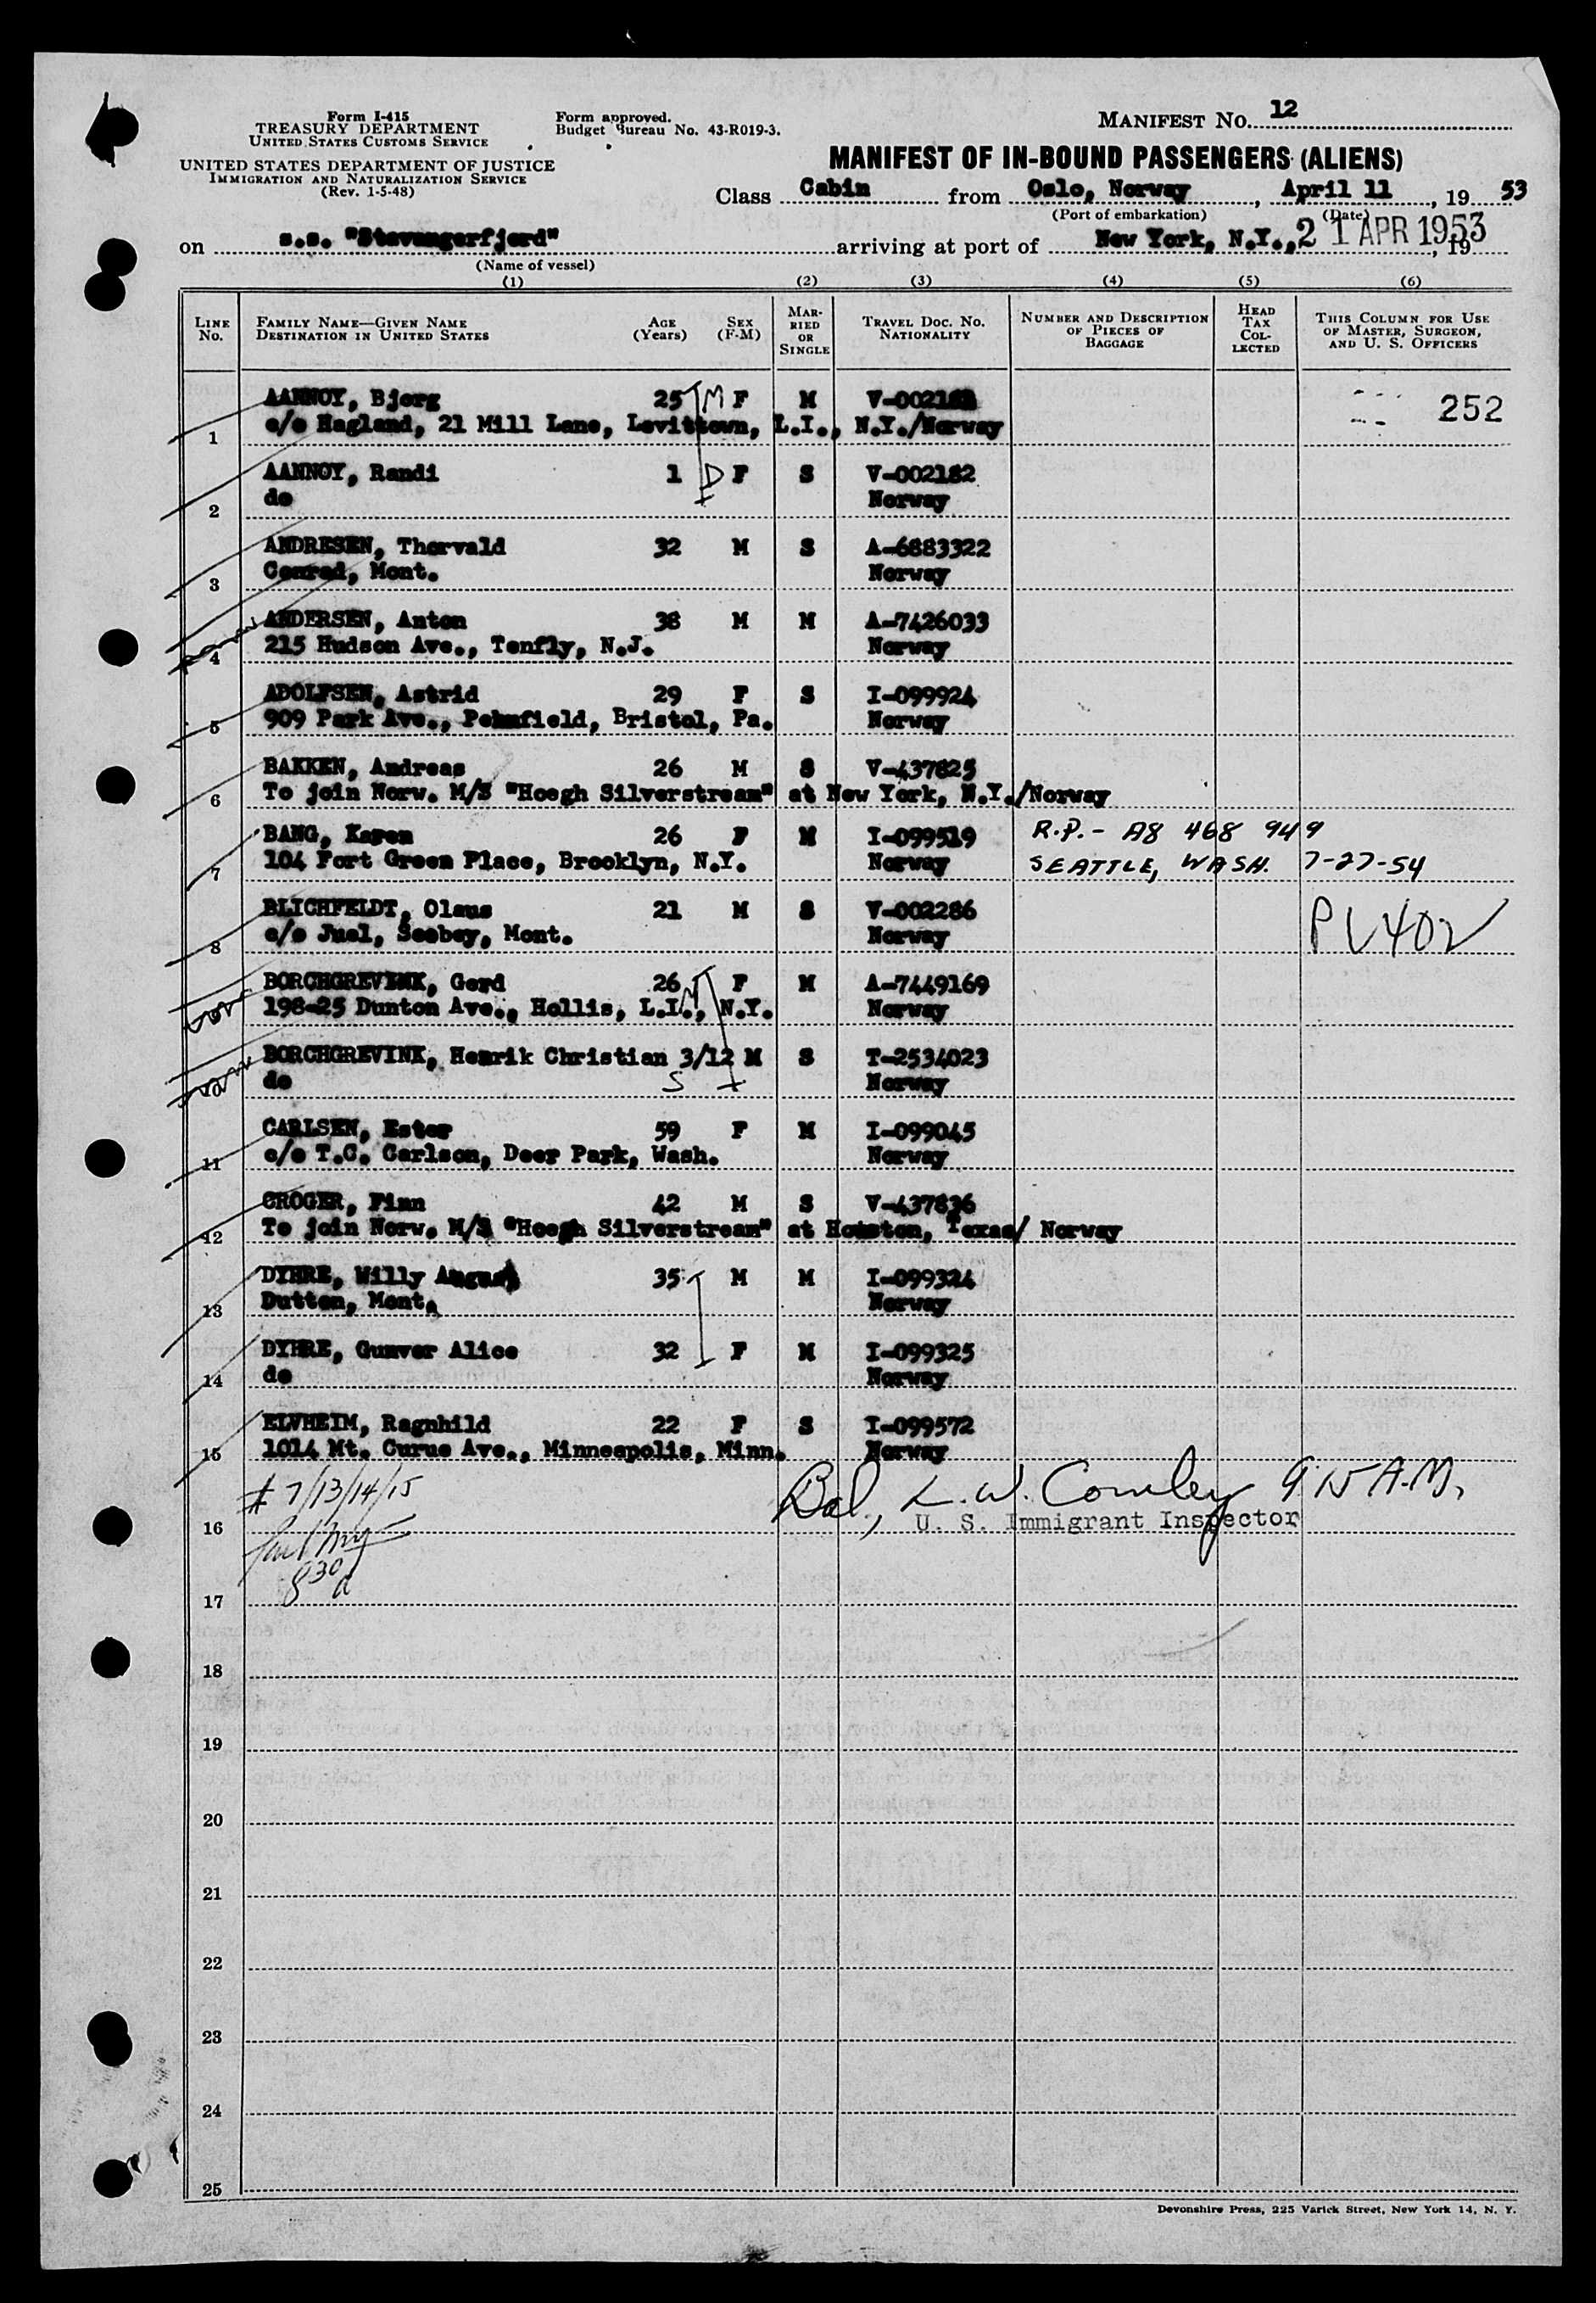 Form I-415
TREASURY DEPARTMENT
UNITED STATES CUSTOMS SERVICE
UNITED STATES DEPARTMENT OF JUSTICE
IMMIGRATION AND NATURALIZATION SERVICE
(Rev. 1-5-48)
Form approved.
Budget Bureau No. 43-R019-3.
MANIFEST No. 12
MANIFEST OF IN-BOUND PASSENGERS (ALIENS)
Class Cabin from Oslo, Norway, April 11, 19 53
(Port of embarkation) (Date)
on s.s. "Stavangerfjord" arriving at port of New York, N.Y., 21 APR 1953, 19
(Name of vessel)
(1) (2) (3) (4) (5) (6)
LINE No. FAMILY NAME—GIVEN NAME DESTINATION IN UNITED STATES AGE (Years) SEX (F-M) MARRIED OR SINGLE TRAVEL DOC. NO. NATIONALITY NUMBER AND DESCRIPTION OF PIECES OF BAGGAGE HEAD TAX COLLECTED THIS COLUMN FOR USE OF MASTER, SURGEON, AND U. S. OFFICERS
AANNOY, Bjorg 25 M F M 252
1 c/o Hagland, 21 Mill Lane, Levittown, L.I., N.Y./Norway
AANNOY, Randi 1 D F S V-002182
2 do Norway
ANDRESEN, Thorvald 32 M S A-6883322
3 Conrad, Mont. Norway
ANDERSEN, Anton 38 M M A-7426033
4 215 Hudson Ave., Tenfly, N.J. Norway
ADOLFSEN, Astrid 29 F S I-099924
5 909 Park Ave., Bristol, Pa. Norway
BAKKEN, Andreas 26 M S V-437825
6 To join Norw. M/S "Hoegh Silverstream" at New York, N.Y./Norway
BANG, Karen 26 F M I-099519 R.P.- A8 468 949
7 104 Fort Green Place, Brooklyn, N.Y. Norway SEATTLE, WASH. 7-27-54
BLICHFELDT, Olaus 21 M S V-002286 PV402
8 c/o Juel, Seobey, Mont. Norway
BORCHGREVINK, Gerd 26 M F M A-7449169
198-25 Dunton Ave., Hollis, L.I., N.Y. Norway
BORCHGREVINK, Henrik Christian 3/12 M S T-2534023
10 do S Norway
CARLSEN, Ester 59 F M I-099045
11 c/o T.C. Carlson, Deer Park, Wash. Norway
CROGER, Finn 42 M S V-437836
12 To join Norw. M/S "Hoegh Silverstream" at Houston, Texas/ Norway
DYHRE, Willy August 35 M M I-099324
13 Dutton, Mont. Norway
DYHRE, Gunver Alice 32 F M I-099325
14 do Norway
ELVHEIM, Ragnhild 22 F S I-099572
15 1014 Mt. Curue Ave., Minneapolis, Minn. Norway
# 7/13/14/15
Bal., L.W. Comley 9:15 A.M.
16 U. S. Immigrant Inspector
830
17
18
19
20
21
22
23
24
25
Devonshire Press, 225 Varick Street, New York 14, N. Y.